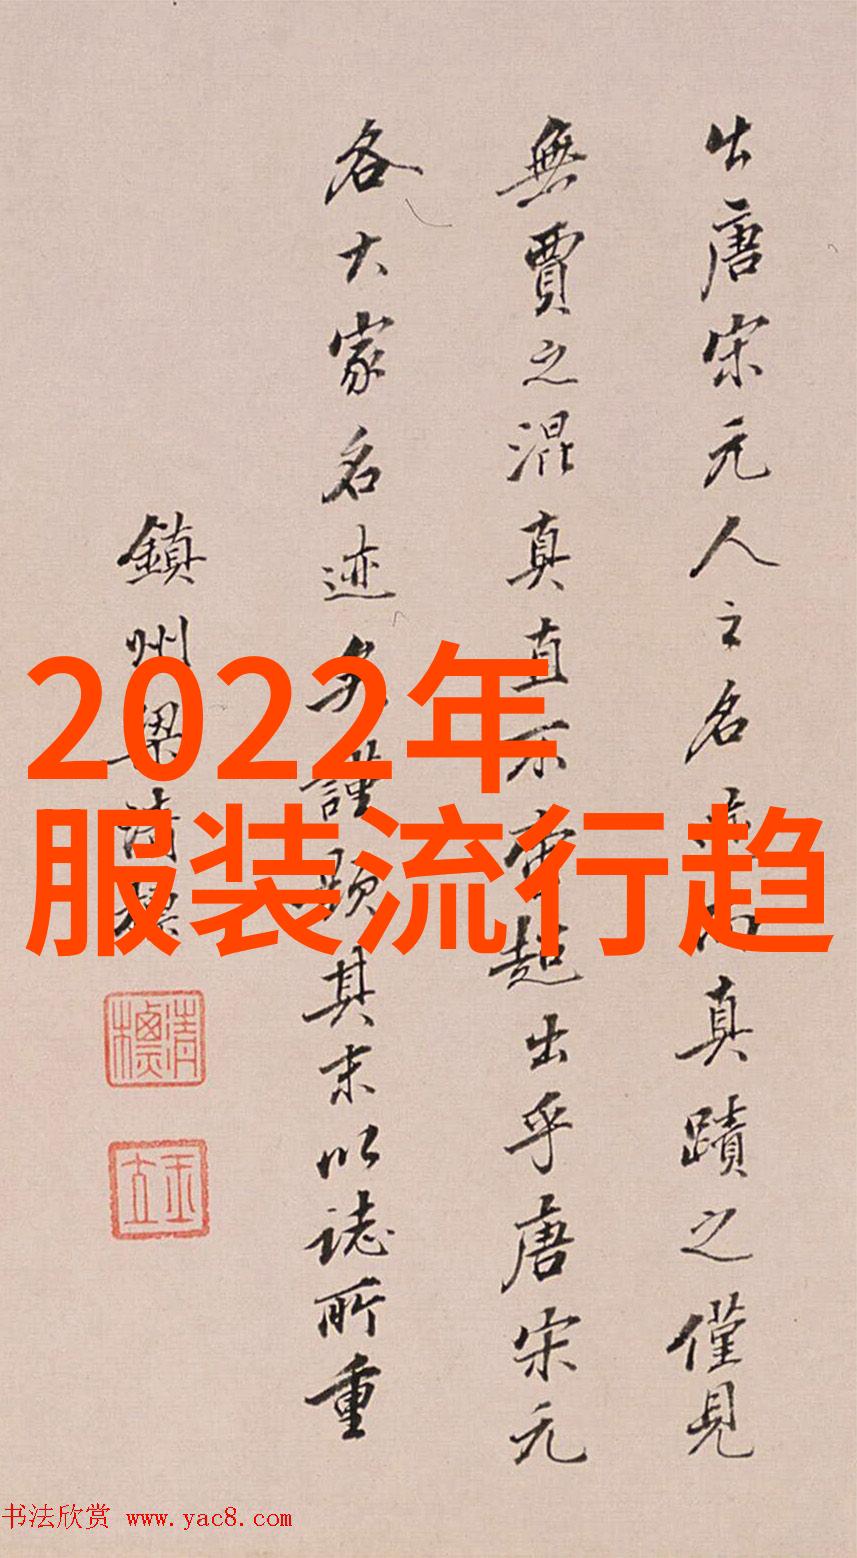 2022年
服装流行趋
出唐宋元人之名真蹟之僅見
無賈之混真直不啻超出乎唐宋元
各大家名迹謹題其末以誌所重
鎮州梁清標
清標
玉立
书法欣赏 www.yac8.com